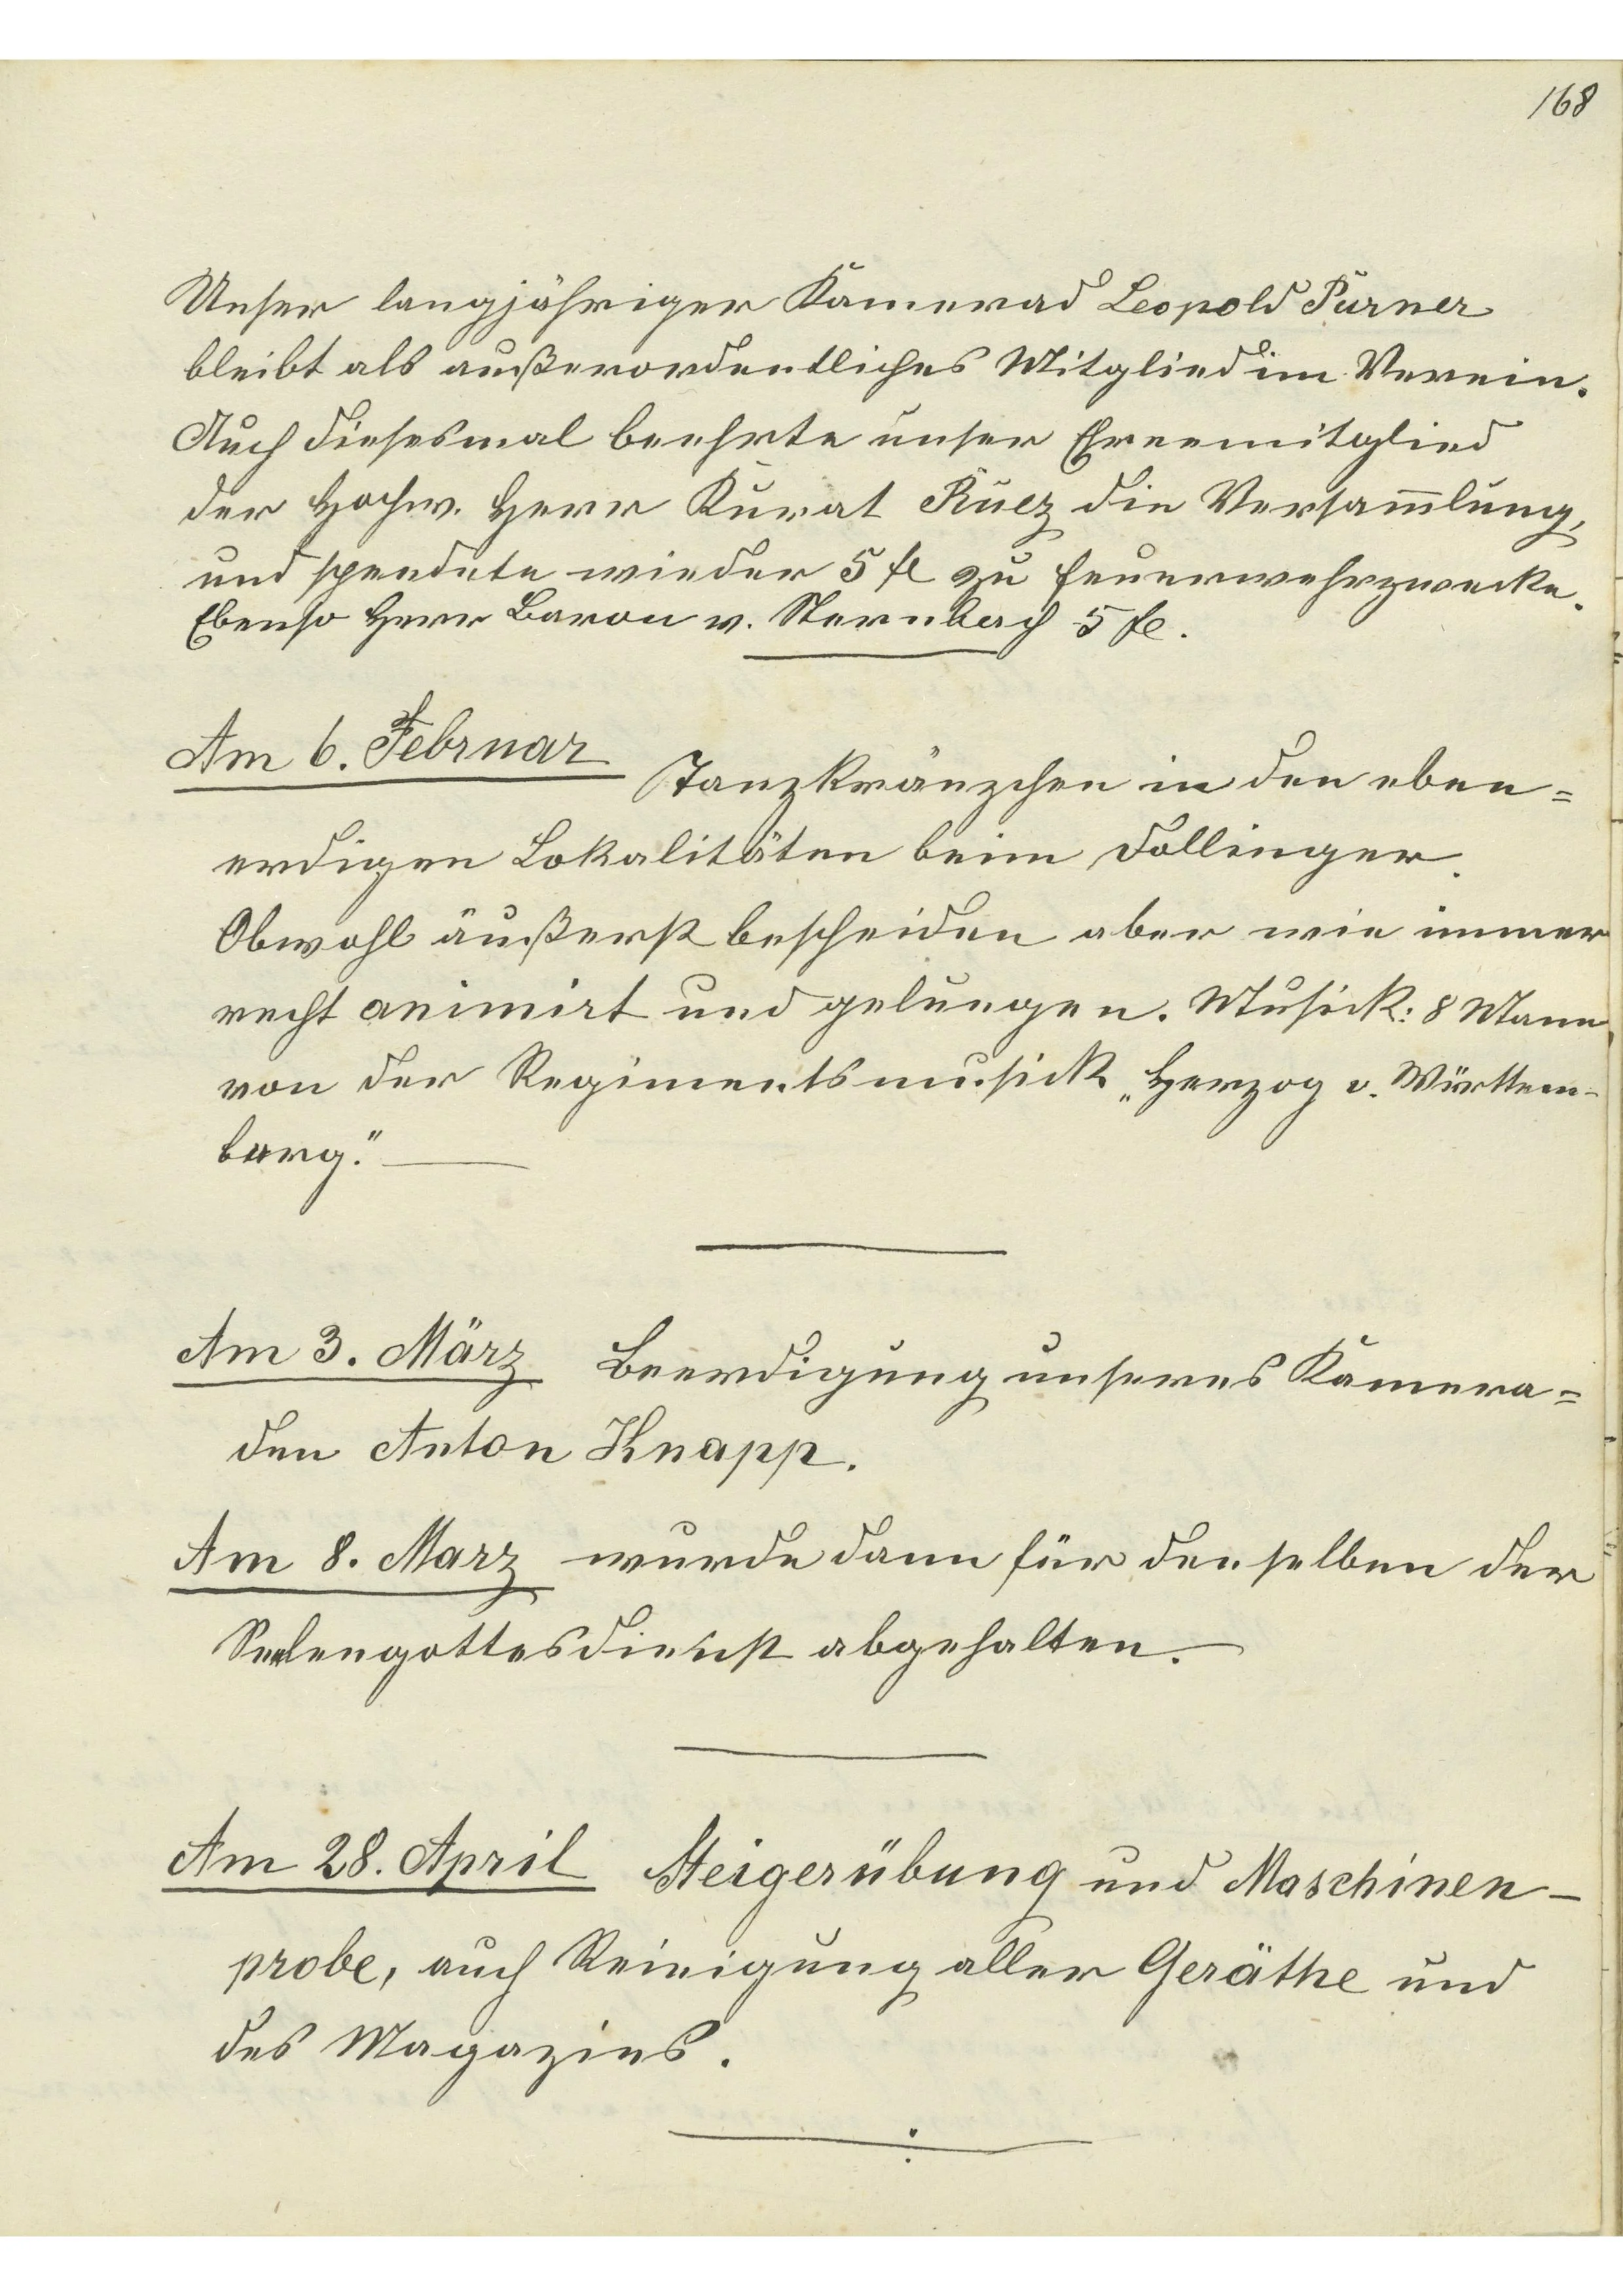 168
Unser langjähriger Kamerad Leopold Purner
bleibt als außerordentliches Mitglied im Verein.
Auch diesesmal beehrte unser Ehrenmitglied
der Hochw. Herr Kurat Ruez die Versam̅lung,
und spendete wieder 5 fl zu Feuerwehrzwecke.
Ebenso Herr Baron v. Sternbach 5 fl.
Am 6. Februar Tanzkränzchen in den eben=
erdigen Lokalitäten beim Dollinger.
Obwohl äußerst bescheiden aber wie immer
recht animirt und gelungen. Musick: 8 Mann
von der Regimentsmusick „Herzog v. Württem-
berg."
Am 3. März Beerdigung unseres Kamera=
den Anton Knapp.
Am 8. Marz wurde dann für denselben der
Seelengottesdienst abgehalten.
Am 28. April Steigerübung und Maschinen-
probe, auch Reinigung aller Geräthe und
des Magazins.